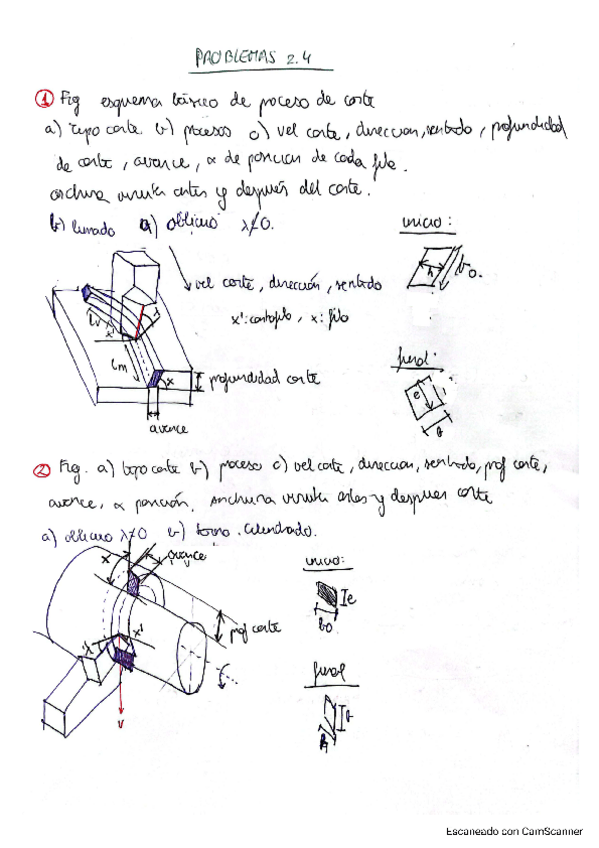 PROBLEMAS 2.4
1 Fig esquema básico de proceso de corte
a) tipo corte b) procesos c) vel corte, direccion, sentido, profundidad
de corte, avance, α de posicion de cada filo.
anchura viruta antes y después del corte.
b) limado a) oblicuo λ≠0.
inicio:
h
b0.
vel corte, dirección, sentido
x': contrafilo, x: filo
lv
x'
λ
lm
x
profundidad corte
avance
final:
e
2 Fig. a) tipo corte b) proceso c) vel corte, direccion, sentido, prof corte,
avance, α posición. Anchura viruta antes y despues corte
a) oblicuo λ≠0 b) torno. Cilindrado.
x
avance
inicio:
e
b0
prof corte
λ
x'
final
v
Escaneado con CamScanner